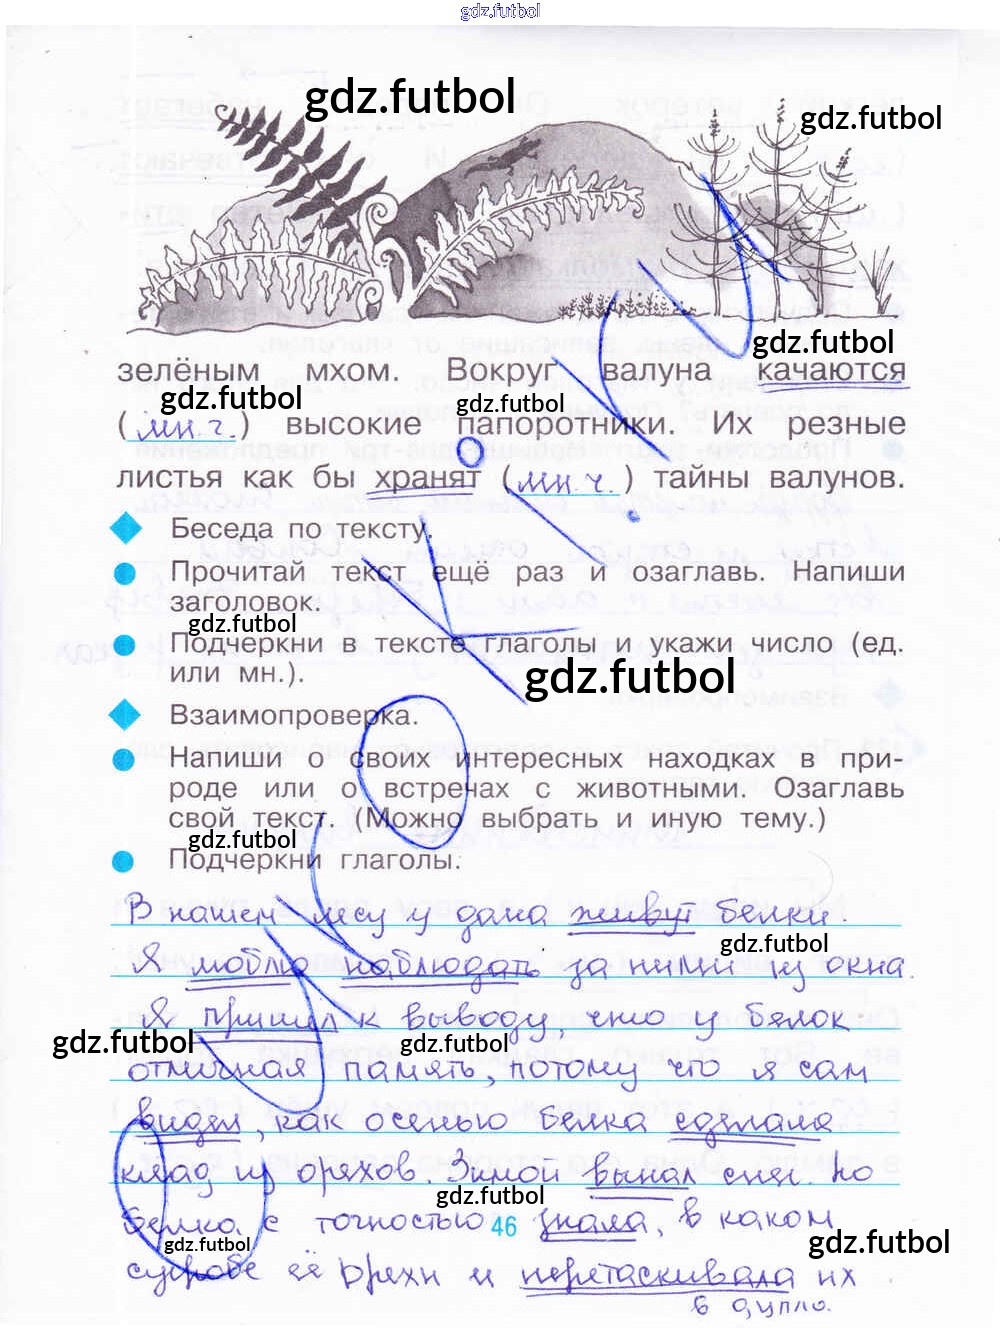 gdz.futbol
gdz.futbol
gdz.futbol
gdz.futbol
зелёным мхом. Вокруг валуна качаются
gdz.futbol
gdz.futbol
(мн.ч.) высокие папоротники. Их резные
листья как бы хранят (мн.ч.) тайны валунов.
Беседа по тексту.
Прочитай текст ещё раз и озаглавь. Напиши
заголовок.
gdz.futbol
Подчеркни в тексте глаголы и укажи число (ед.
или мн.).
gdz.futbol
Взаимопроверка.
Напиши о своих интересных находках в при-
роде или о встречах с животными. Озаглавь
свой текст. (Можно выбрать и иную тему.)
gdz.futbol
Подчеркни глаголы.
В нашем лесу у дома живут белки.
gdz.futbol
Я люблю наблюдать за ними из окна.
Я пришел к выводу, что у белок
gdz.futbol
gdz.futbol
отличная память, потому что я сам
видел, как осенью белка сделала
клад из орехов. Зимой выпал снег. Но
gdz.futbol
белка с точностью знала, в каком
46
gdz.futbol
gdz.futbol
сугробе её орехи и перетаскивала их
в дупло.